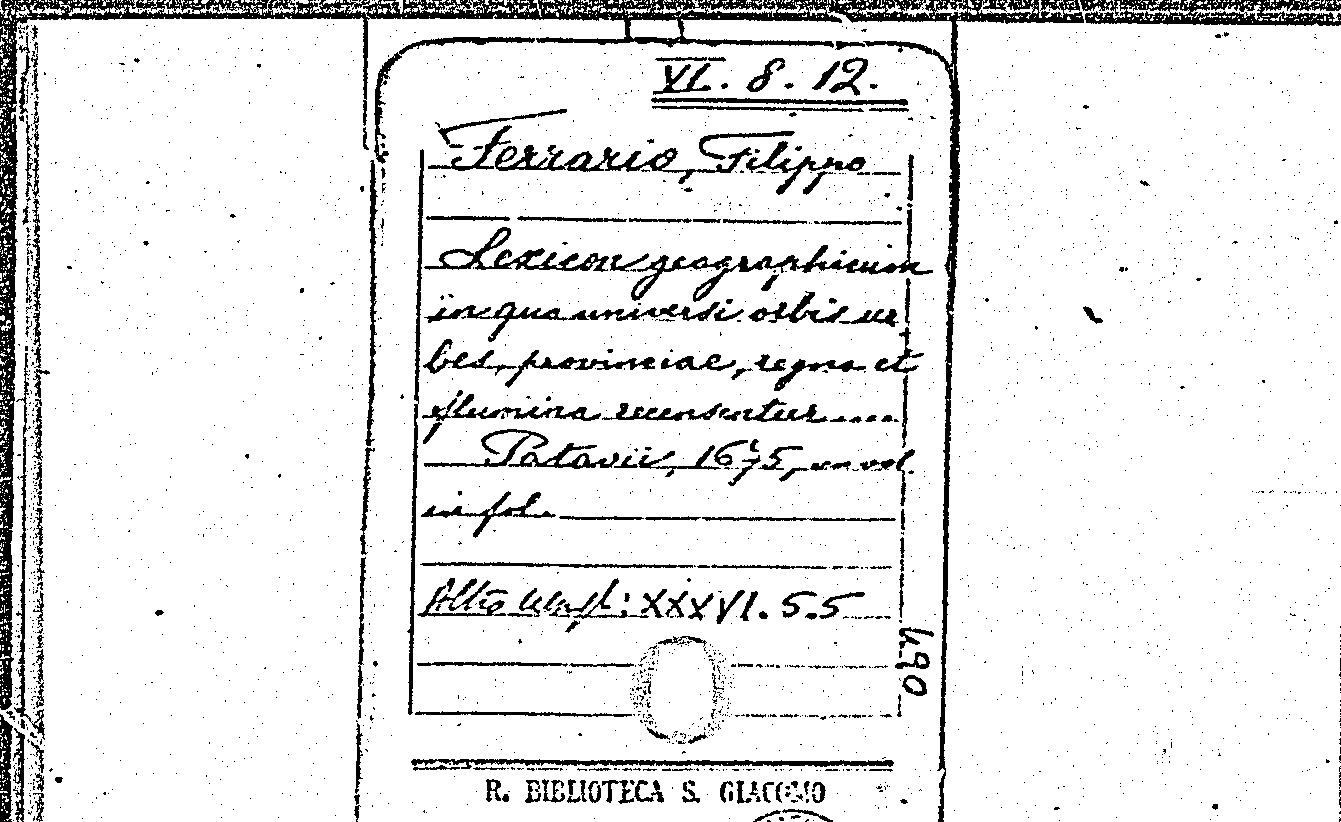 VI. 8. 12.
Ferrario, Filippo
Lexicon geographicum
in quo universi orbis ur
bes, provinciae, regna et
flumina recensentur ....
Patavii, 1675, un vol.
in fol.
Altro : XXXVI. 5.5
490
R. BIBLIOTECA S. GIACOMO